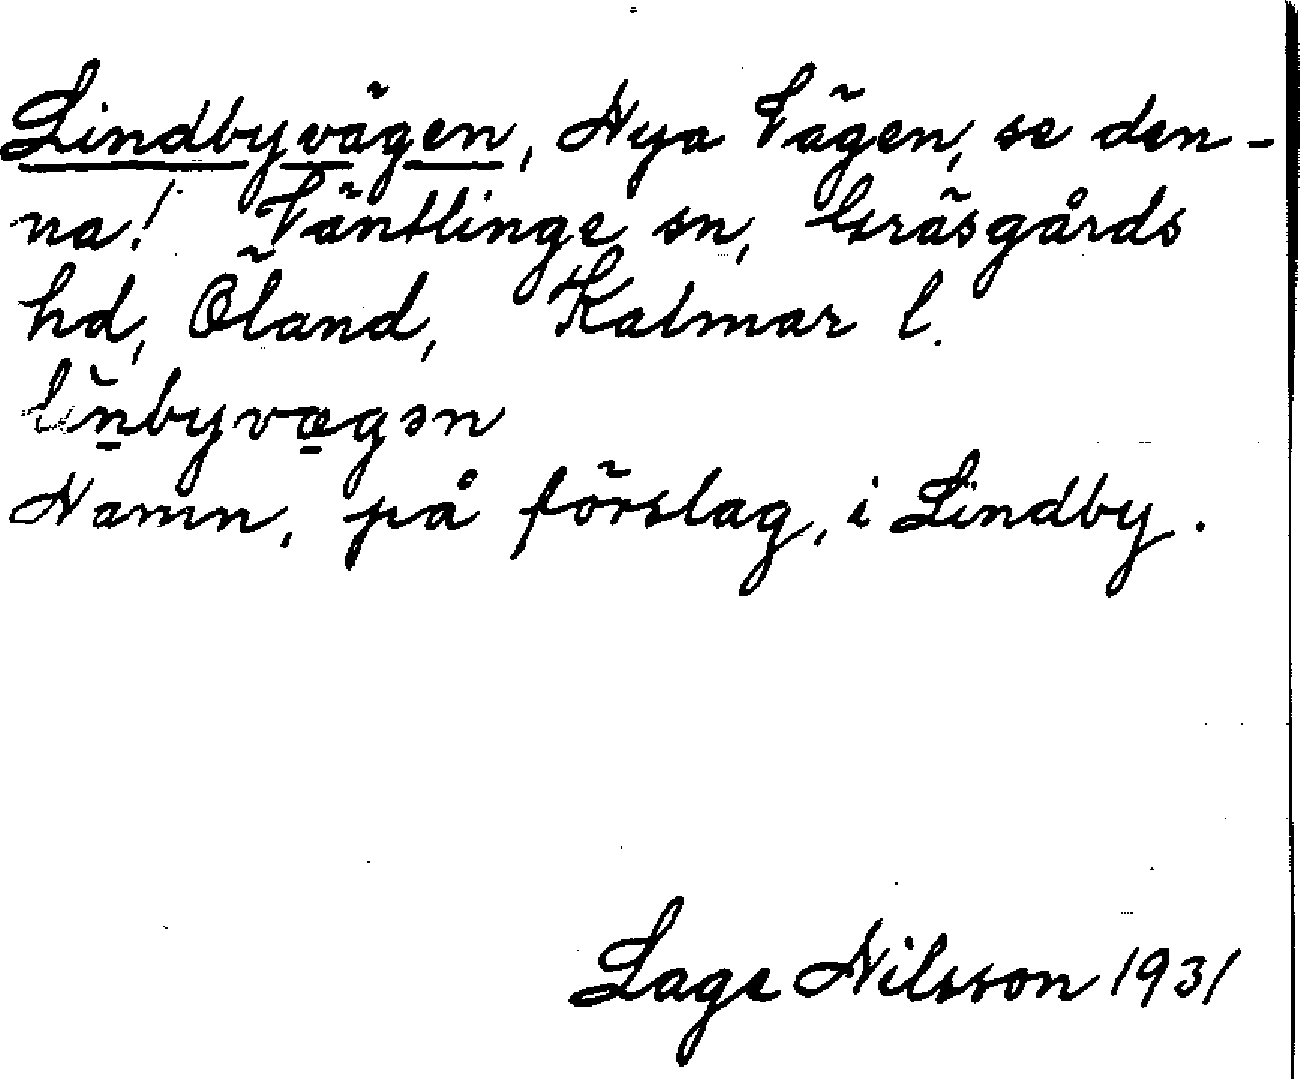 Lindbyvägen, Nya Vägen, se den-
na! Väntlinge sn, Gräsgårds
hd, Öland, Kalmar l.
lìn̲byvæ̲gən
Namn, på förslag, i Lindby.
Lage Nilsson 1931